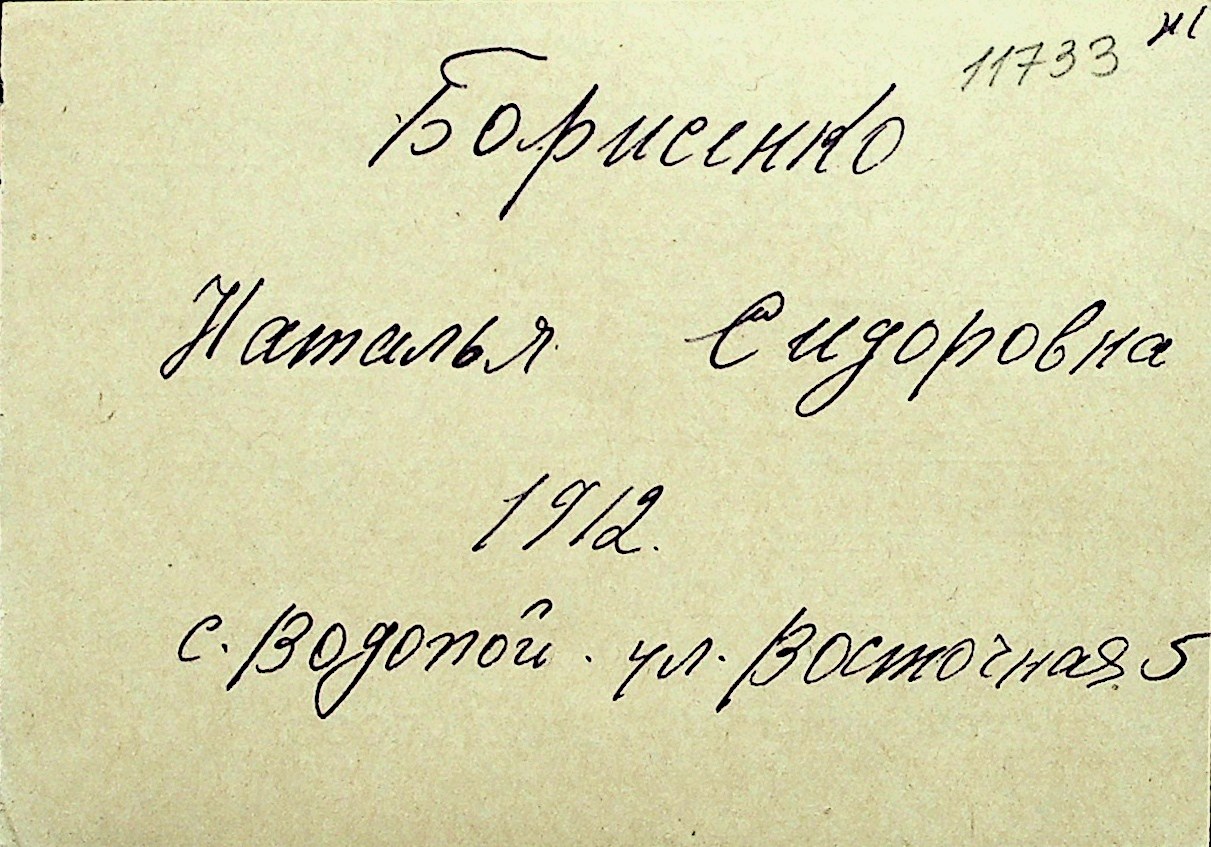 11733
Борисенко
Наталья Сидоровна
1912.
с. Водопой. ул. Восточная 5